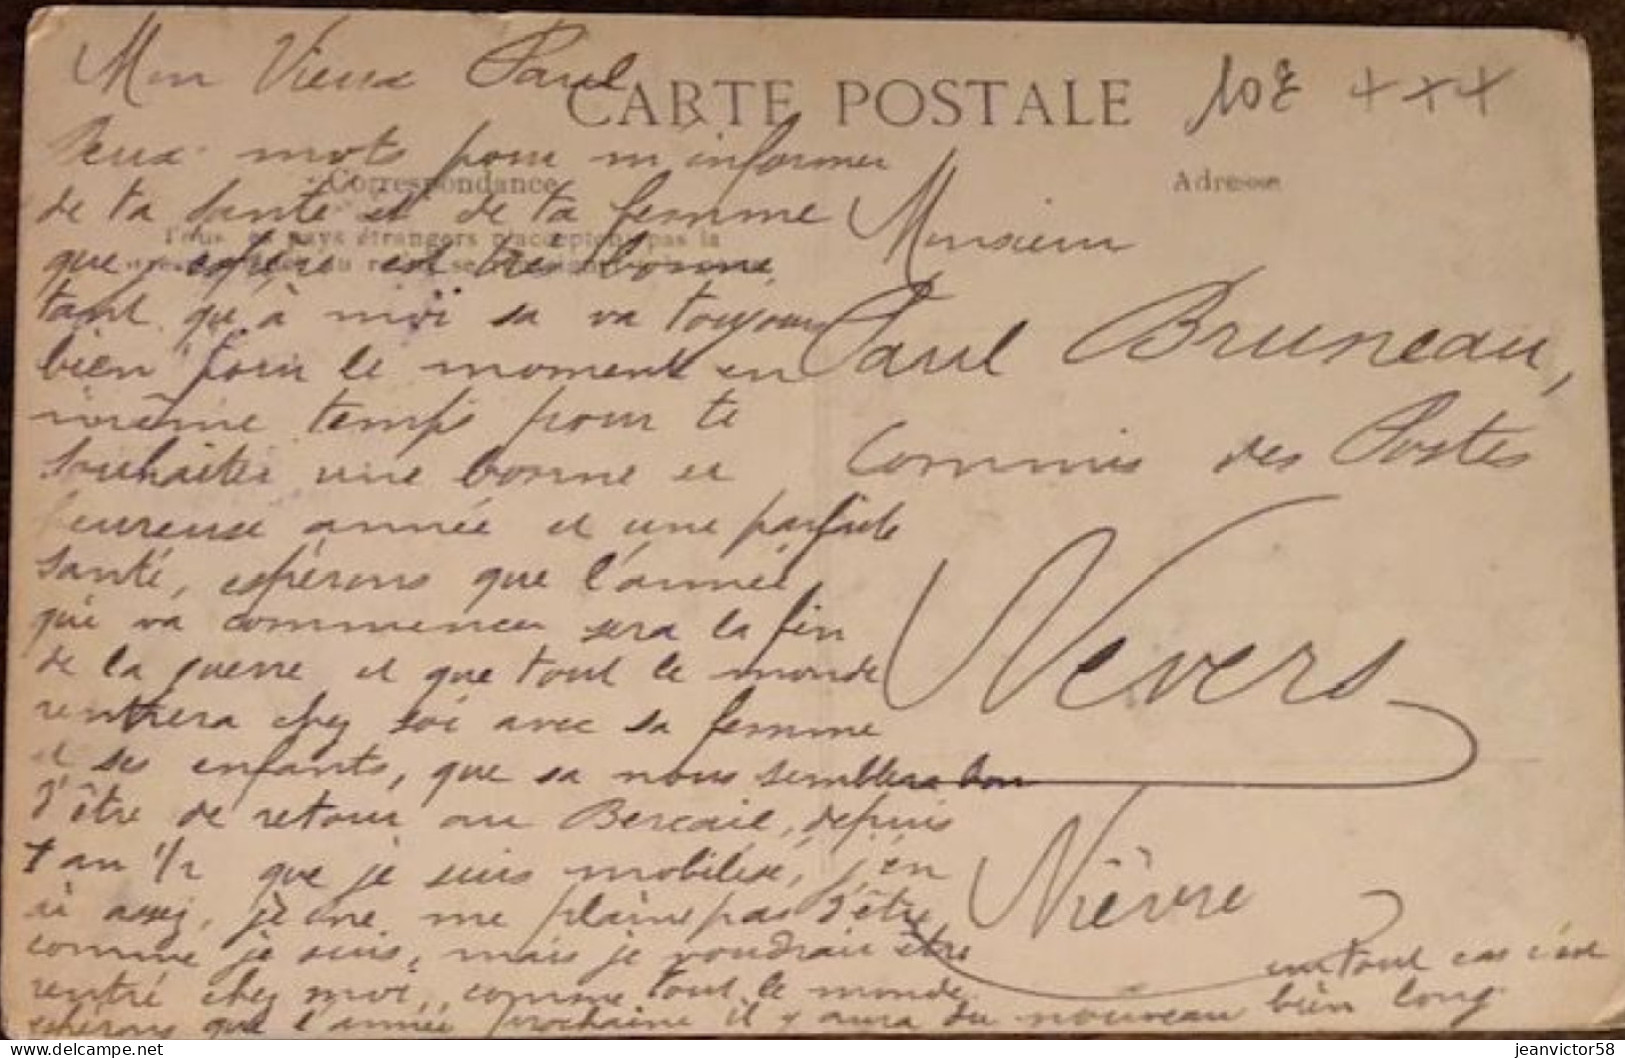 Mon Vieux Paul
CARTE POSTALE
10 + + +
Deux mots pour m'informer
Correspondance
Adresse
de ta santé et de ta femme
Tous pays étrangers n'acceptent pas la
que j'espère est très bonne,
tant qu'à moi sa va toujours
bien pour le moment en
même temps pour te
souhaiter une bonne et
heureuse année et une parfaite
santé, espérons que l'année
qui va commencer sera la fin
de la guerre et que tout le monde
rentrera chez soi avec sa femme
et ses enfants, que sa nous semblera bon
d'être de retour au Bercail, depuis
1 an 1/2 que je suis mobilisé, j'en
ai assez, je ne me plains pas d'être
comme je suis, mais je voudrais être
rentré chez moi, comme tout le monde,
espérons que l'année prochaine il y aura du nouveau
en tout cas c'est
bien long
Monsieur
Paul Bruneau,
Commis des Postes
Nevers
Nièvre
jeanvictor58